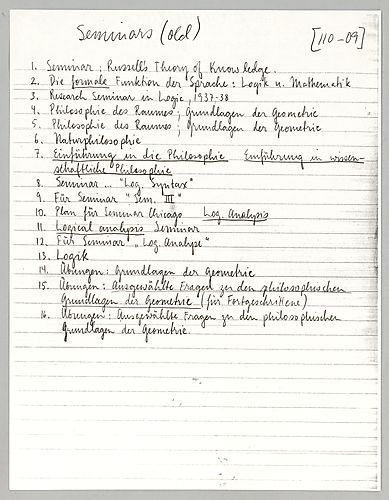 Seminars (old)
[110-09]
1. Seminar: Russell's Theory of Knowledge.
2. Die formale Funktion der Sprache: Logik u. Mathematik
3. Research Seminar in Logic, 1937-38
4. Philosophie des Raumes; Grundlagen der Geometrie
5. Philosophie des Raumes; Grundlagen der Geometrie
6. Naturphilosophie
7. Einführung in die Philosophie Einführung in wissen-
schaftliche Philosophie
8. Seminar ... "Log. Syntax"
9. Für Seminar "Sem. III"
10. Plan für Seminar Chicago Log. Analysis
11. Logical analysis Seminar
12. Für Seminar "Log. Analyse"
13. Logik
14. Übungen: Grundlagen der Geometrie
15. Übungen: Ausgewählte Fragen zu den philosophischen
Grundlagen der Geometrie (für Fortgeschrittene)
16. Übungen: Ausgewählte Fragen zu den philosophischen
Grundlagen der Geometrie.